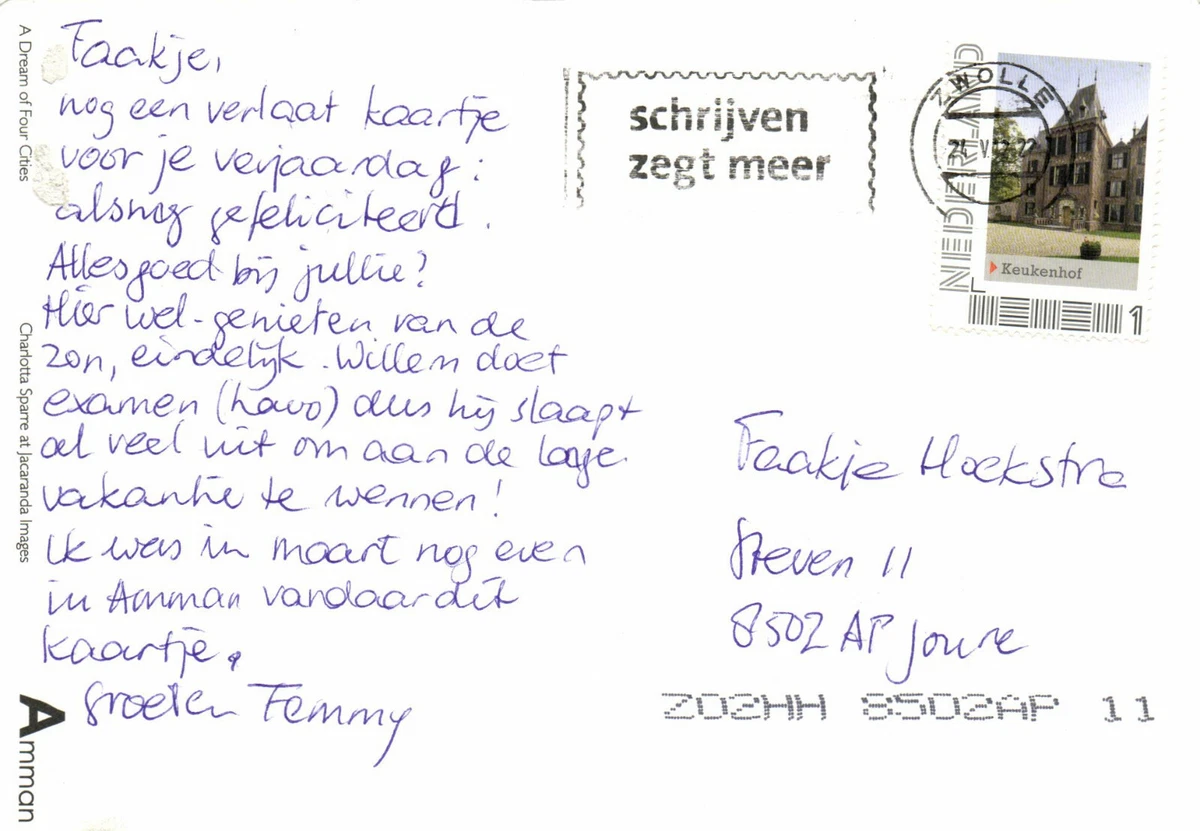 Faakje,
nog een verlaat kaartje
voor je verjaardag:
alsnog gefeliciteerd.
Alles goed bij jullie?
Hier wel - genieten van de
zon, eindelijk. Willem doet
examen (havo) dus hij slaapt
al veel uit om aan de lange
vakantie te wennen!
Ik was in maart nog even
in Amman vandaar dit
kaartje.
Groeten Femmy
A Dream of Four Cities
Charlotta Sparre at Jacaranda Images
Amman
schrijven
zegt meer
ZWOLLE
NEDERLAND
Keukenhof
1
Faakje Hoekstra
Steven 11
8502 AP Joure
ZO2HH 8502AP 11